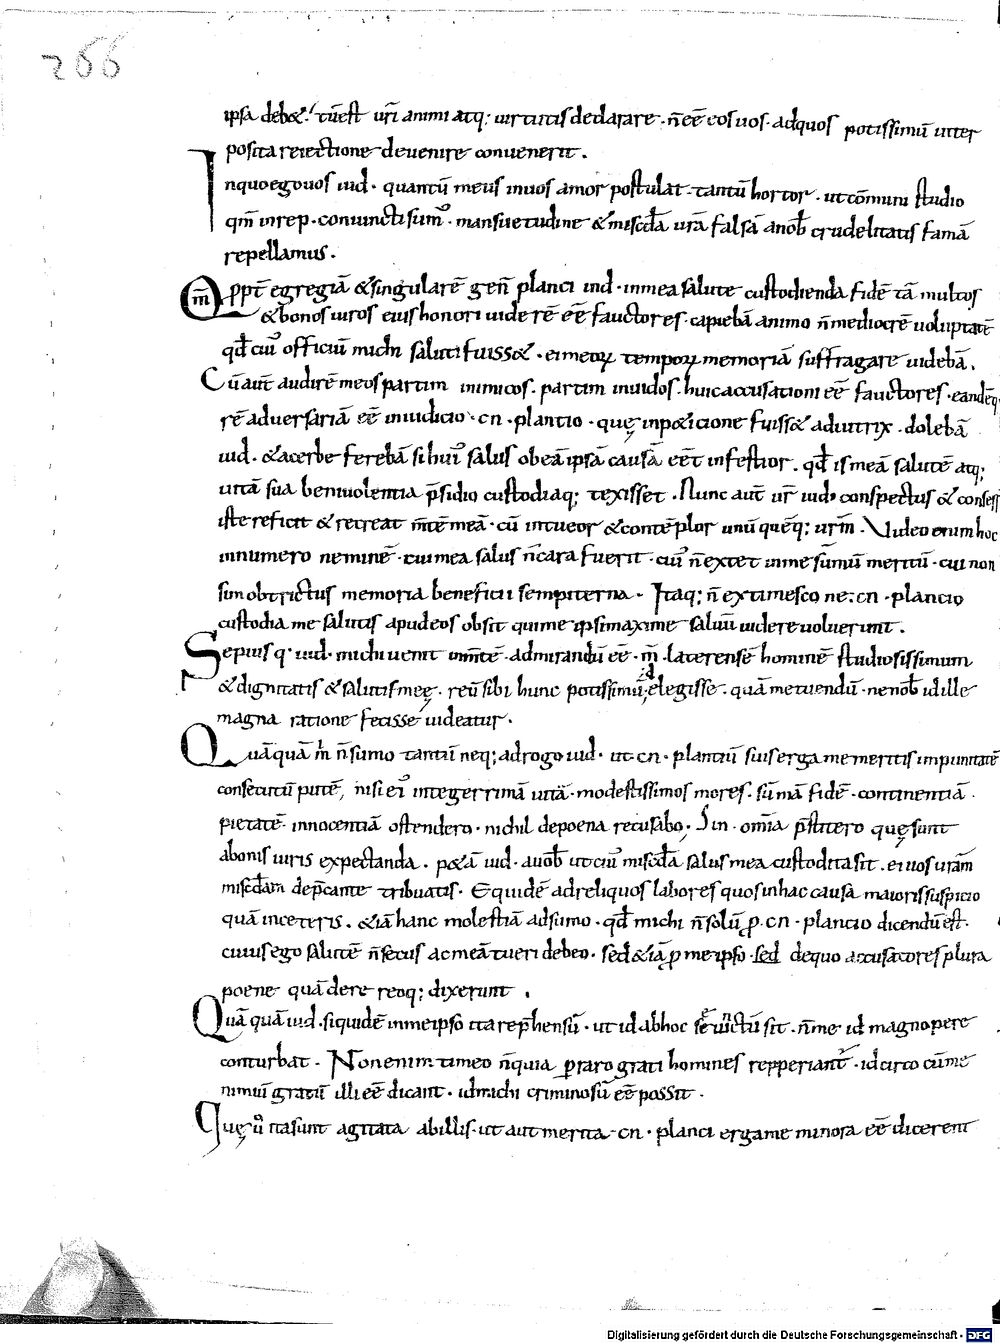 266
ipsa deb&. tūest ur̄i animi atq; uirtutis declarare. n̄eē eos uos. adquos potissimū utter
posita reiectione deuenire conuenerit.
Inquoegouos iud. quantū meus inuos amor postulat. tantū hortor. utcōmuni studio
qm̄ inrep. coniuncti sum'. mansuetudine &misc̄da urā falsā anob̄ crudelitatis famā
repellamus.
Qm̄ ppt̄ egregiā &singularē gen̄ planci iud. inmea salute custodienda fidē tā multos
&bonos uiros eius honori uiderē eē fauctores. capiebā animo n̄mediocrē uoluptatē
qd̄ cui' officiū michi saluti fuiss&. ei meoꝝ tempoꝝ memoriā suffragare uidebā.
Cūaut̄ audirē meos partim inimicos. partim inuidos. huic accusationi eē fauctores. eandēq;
rē aduersariā eē iniudicio. cn. plantio. quę inp&icione fuiss& adiutrix. dolebā
iud. &acerbe ferebā si hui' salus obeā ipsā causā eēt infestior. qd̄ is meā salutē atq;
uitā sua beniuolentia p̄sidio custodiaq; texisset. Nunc aut̄ ur̄ iud. conspectus & consess
iste reficit & recreat m̄tē meā. cū intueor &contēplor unū quēq; urm̄. Video enim hoc
innumero neminē. cui mea salus n̄cara fuerit. cui' n̄extet inme sūmū meritū. cui non
sim obtrictus memoria beneficii sempiterna. Itaq; n̄ extimesco ne. cn. plancio
custodia me salutis apudeos obsit qui me ipsi maxime saluū uidere uoluerunt.
Sepius q. iud. michi uenit inm̄tē. admirandū eē. m̄. laterensē hominē studiosissimum
&dignitatis &salutis meę. reū sibi hunc potissimū id elegisse. quā metuendū. nenob̄ id ille
magna ratione fecisse uideatur.
Quāquā m̄ n̄sumo tantū neq; adrogo iud. ut. cn. plantiū suis erga me meritis impunitatē
consecutū putē, nisi ei' integerrimā uitā. modestissimos mores. sūmā fidē. continentiā.
pietatē. innocentiā ostendero. nichil depoena recusabo. Sin. om̄ia p̄stitero quę sunt
abonis uiris expectanda. p&ā iud. auob̄ ut cui' misc̄da salus mea custodita sit. ei uos urām
misc̄dam dep̄cante tribuatis. Equidē adreliquos labores quos inhac causa maioris suspicio
quā inceteris. &iā hanc molestiā adsumo. qd̄ michi n̄solū p. cn. plancio dicendū est.
cuius ego salutē n̄secus ac meā tueri debeo. sed&iā p me ipso. sed dequo accusatores plura
poene quā dere reoq; dixerunt.
Quā quā iud. siquidē inmeipso ita rep̄hensū. ut id abhoc seiunctū sit. n̄me id magnopere
conturbat. Nonenim timeo n̄quia praro grati homines repperiant'. idcirco cūme
nimiū gratū illi eē dicant. idmichi criminosū eē possit.
Quę u̇ ita sunt agitata abillis. ut aut merita. cn. planci erga me minora eē dicerent
Digitalisierung gefördert durch die Deutsche Forschungsgemeinschaft - DFG